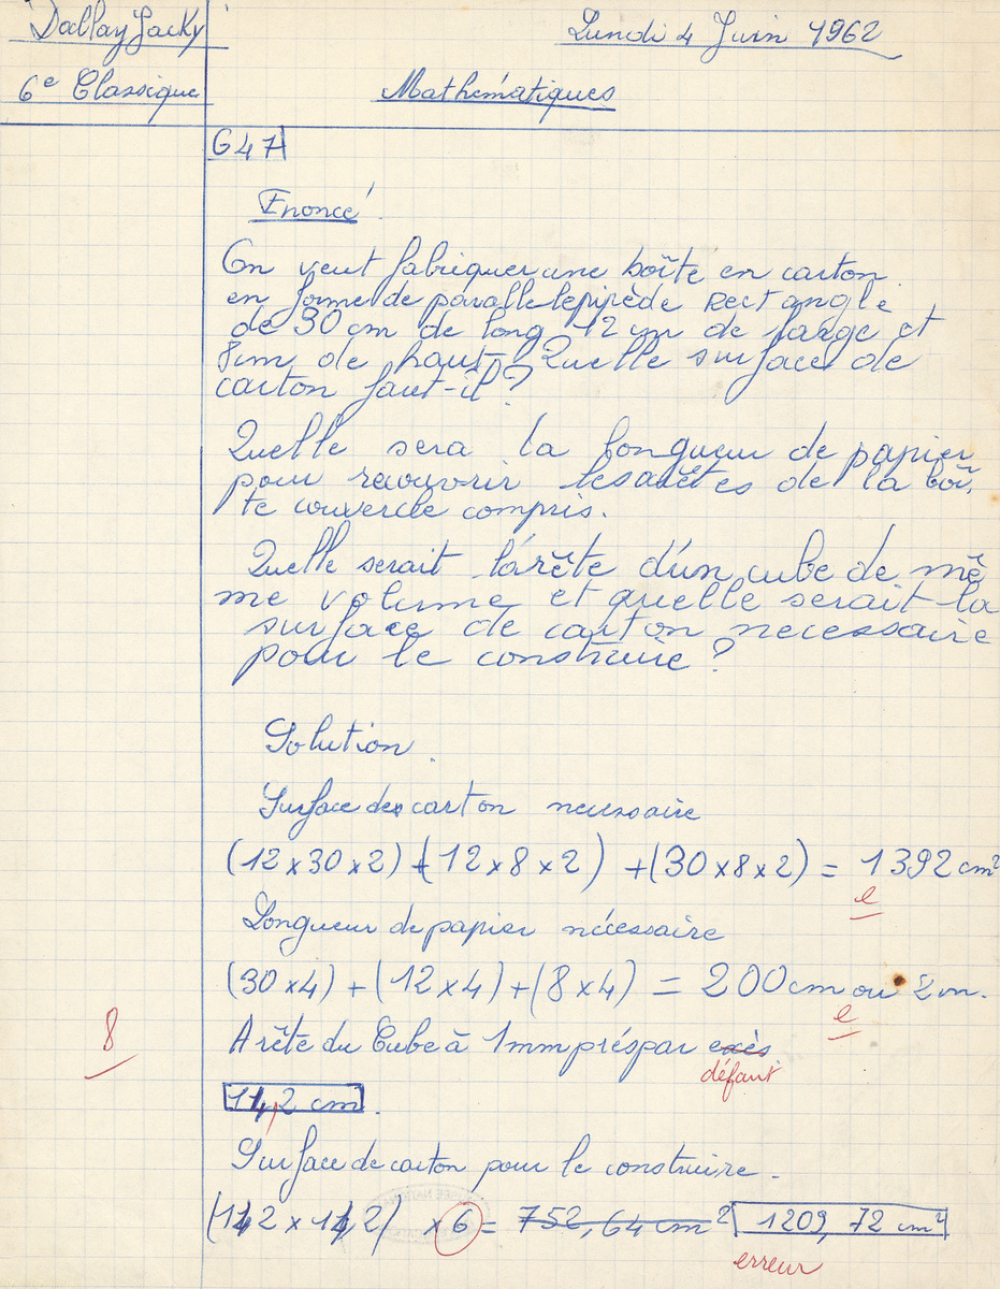 Dallay Jacky
Lundi 4 Juin 1962
6e Classique
Mathématiques
647
Enoncé
On veut fabriquer une boîte en carton
en forme de parallelepipède rectangle
de 30 cm de long 12 cm de large et
8cm de haut. Quelle surface de
carton faut-il ?
Quelle sera la longueur de papier
pour recouvrir les arêtes de la boî-
te couvercle compris.
Quelle serait l'arête d'un cube de mê
me volume et quelle serait la
surface de carton necessaire
pour le construire ?
Solution.
Surface de carton necessaire
(12 x 30 x 2) + (12 x 8 x 2) + (30 x 8 x 2) = 1392 cm²
e
Longueur de papier nécessaire
(30 x 4) + (12 x 4) + (8 x 4) = 200 cm ou 2 m.
e
8
Arête du Cube à 1mm près par excès
défaut
14,2 cm.
Surface de carton pour le construire.
(14,2 x 14,2) x 6 = 752,64 cm² 1209,72 cm²
erreur